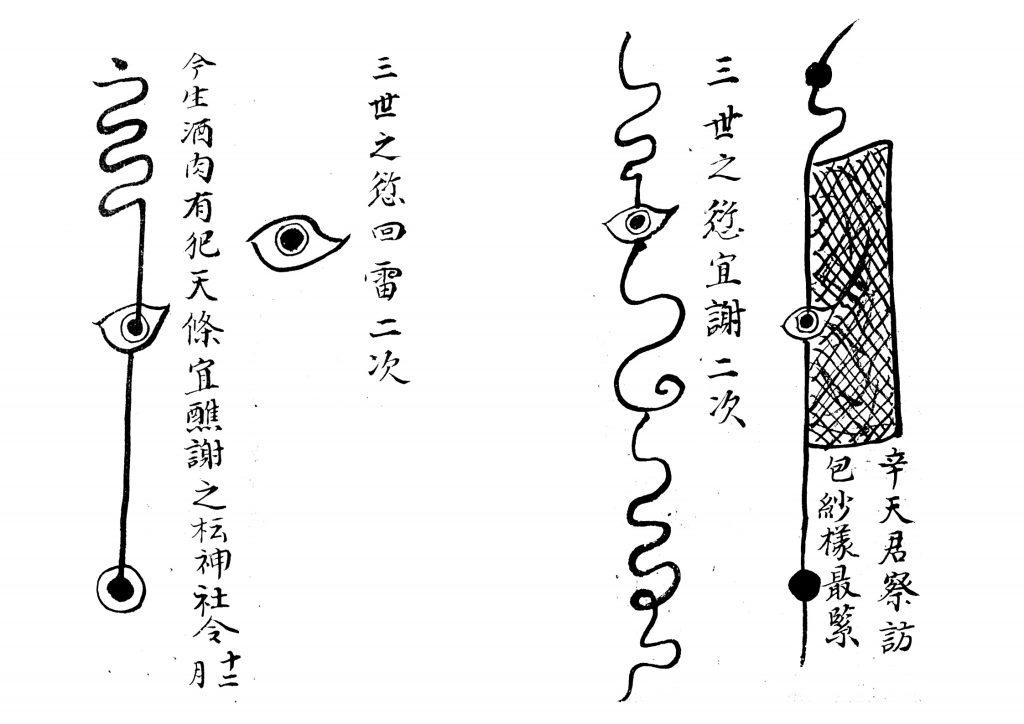 辛天君察訪
包紗樣最緊
三世之愆宜謝二次
三世之愆回雷二次
今生酒肉有犯天條宜醮謝之枟神社令十二月